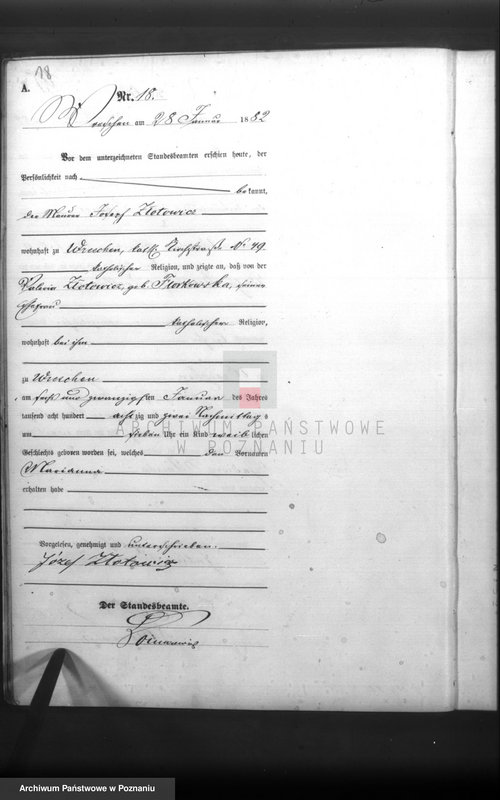 18
A.
Nr. 18.
Wreschen am 28 Januar 1882
Vor dem unterzeichneten Standesbeamten erschien heute, der
Persönlichkeit nach
bekannt,
der Maurer Joseph Złotowicz
wohnhaft zu Wreschen, No 49
katholischer Religion, und zeigte an, daß von der
Valeria Złotowicz, geb. Piotrowska, seiner
Ehefrau
katholischer Religion,
wohnhaft bei ihm
zu Wreschen
am fünf und zwanzigsten Januar des Jahres
tausend acht hundert acht zig und zwei Nachmittags
um sieben Uhr ein Kind weiblichen
Geschlechts geboren worden sei, welches den Vornamen
Marianna
erhalten habe
Vorgelesen, genehmigt und unterschrieben.
Józef Złotowicz
Der Standesbeamte.
ARCHIWUM PAŃSTWOWE
W POZNANIU
Archiwum Państwowe w Poznaniu